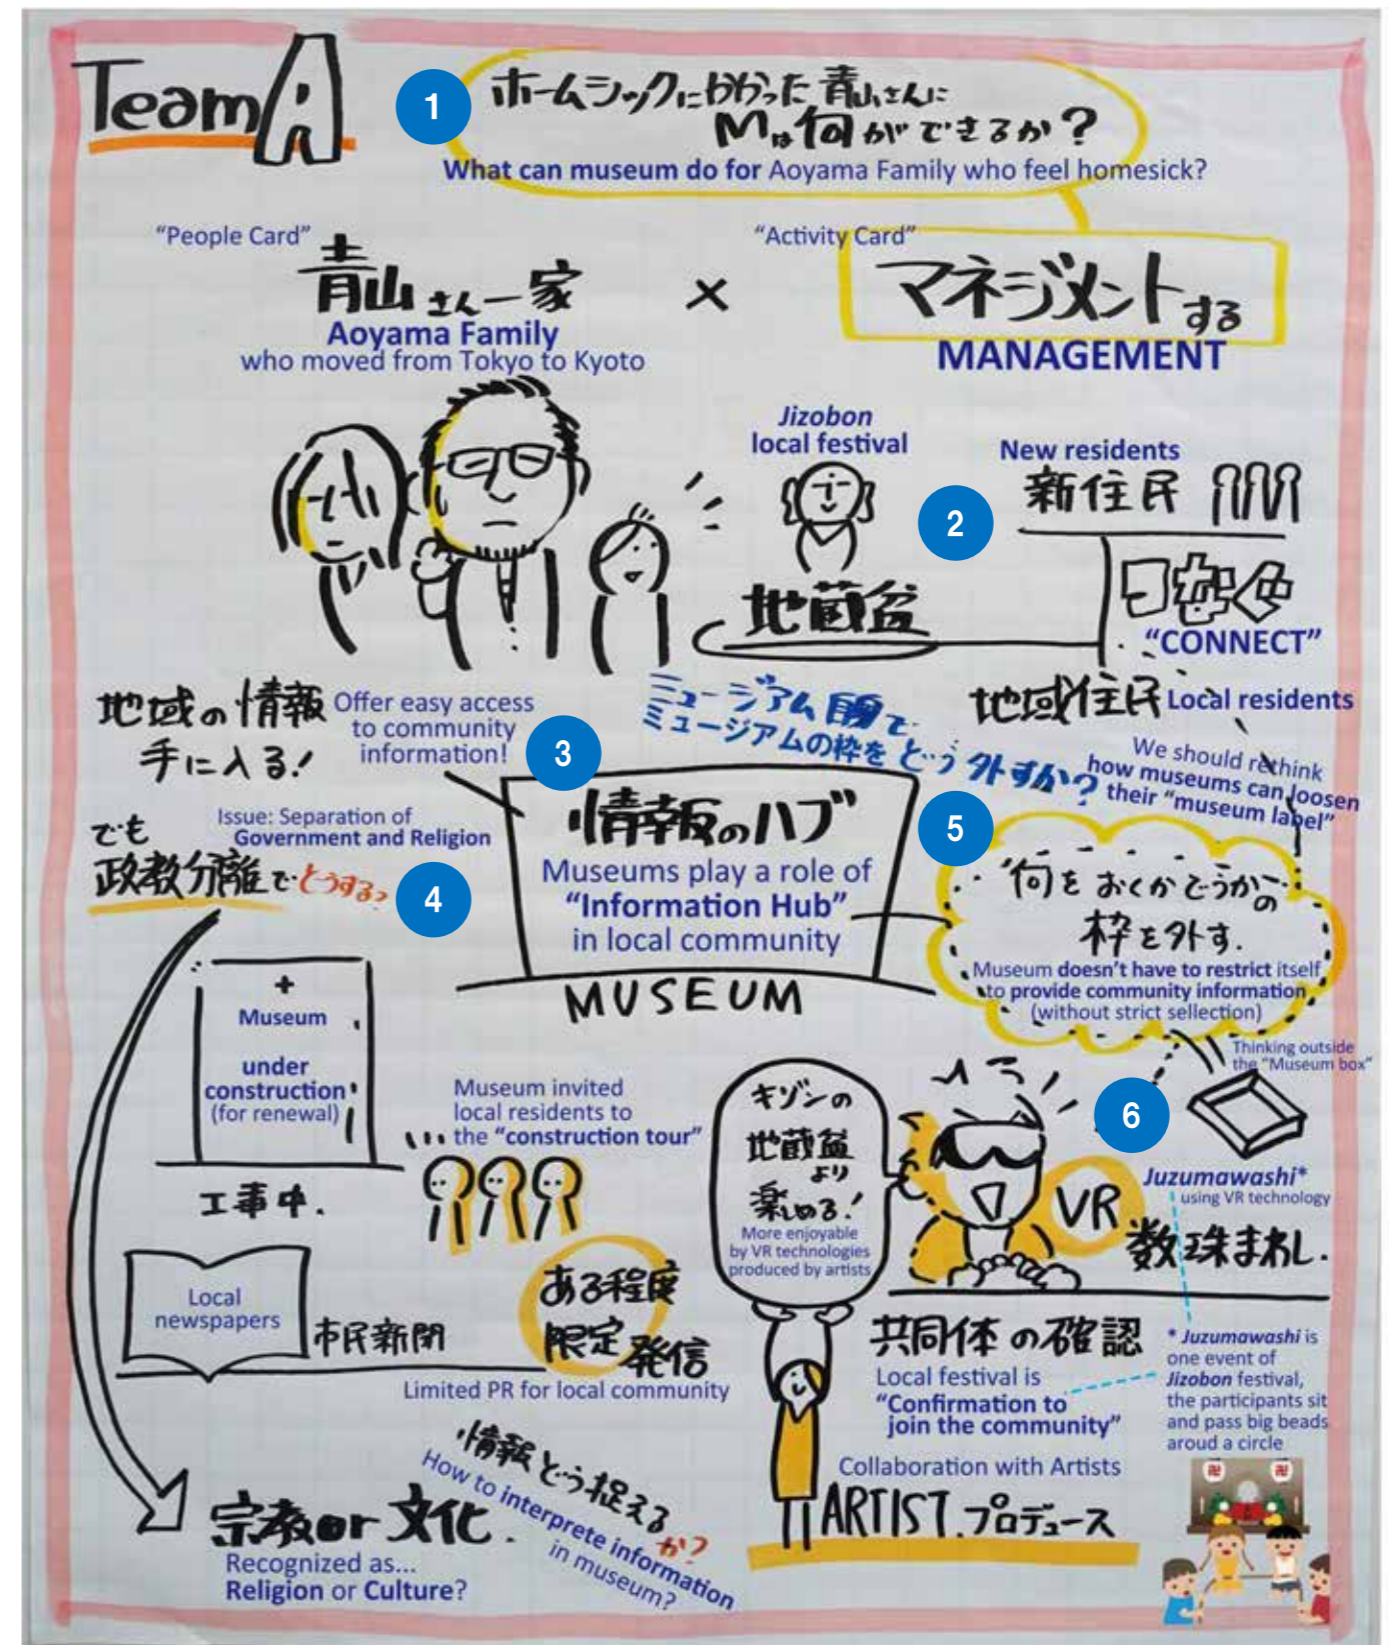 Team A
1
ホームシックにかかった青山さんに
Mは何ができるか?
What can museum do for Aoyama Family who feel homesick?
“People Card”
青山さん一家
Aoyama Family
who moved from Tokyo to Kyoto
×
“Activity Card”
マネジメントする
MANAGEMENT
Jizobon
local festival
地蔵盆
2
New residents
新住民
“CONNECT”
地域住民 Local residents
地域の情報
手に入る!
Offer easy access
to community
information!
3
ミュージアム自身で
ミュージアムの枠をどう外すか?
We should rethink
how museums can loosen
their “museum label”
でも
政教分離でどうする?
Issue: Separation of
Government and Religion
4
情報のハブ
Museums play a role of
“Information Hub”
in local community
MUSEUM
5
何をおくかどうかの
枠を外す.
Museum doesn't have to restrict itself
to provide community information
(without strict sellection)
Thinking outside
the “Museum box”
Museum
under
construction
(for renewal)
工事中.
Museum invited
local residents to
the “construction tour”
キゾンの
地蔵盆
より
楽しめる!
More enjoyable
by VR technologies
produced by artists
6
VR
Juzumawashi*
using VR technology
数珠まわし.
Local
newspapers
市民新聞
ある程度
限定発信
Limited PR for local community
共同体の確認
Local festival is
“Confirmation to
join the community”
* Juzumawashi is
one event of
Jizobon festival,
the participants sit
and pass big beads
aroud a circle
卍 卍
Collaboration with Artists
ARTIST.プロデュース
情報どう捉えるか?
How to interprete information
in museum?
宗教or文化.
Recognized as...
Religion or Culture?